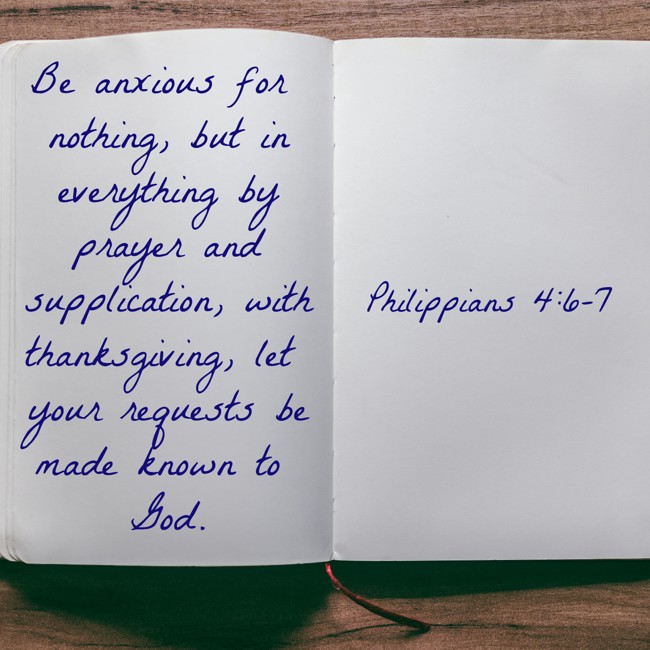 Be anxious for
nothing, but in
everything by
prayer and
supplication, with
thanksgiving, let
your requests be
made known to
God.
Philippians 4:6-7